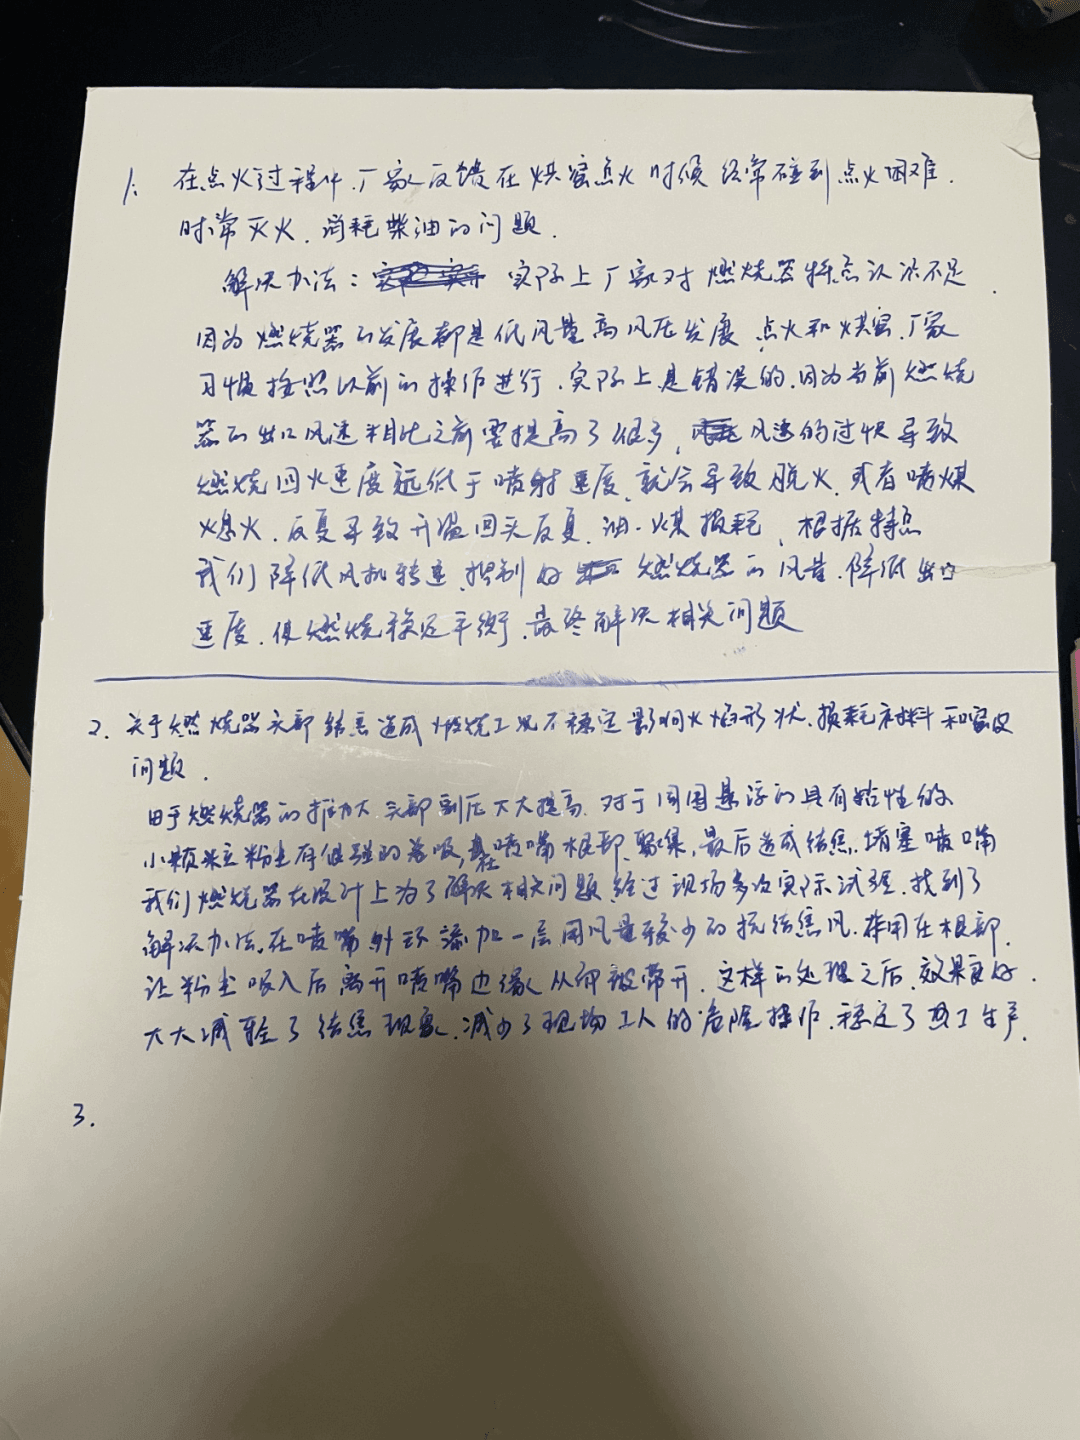 1. 在点火过程中,厂家反馈在烘窑点火时候经常碰到点火困难.
时常灭火、消耗柴油的问题.
解决办法: 实际上厂家对燃烧器特点认识不足.
因为燃烧器的发展都是低风量高风压发展,点火和烘窑,厂家
习惯按照以前的操作进行.实际上是错误的.因为当前燃烧
器的出口风速相比之前要提高了很多, 风速的过快导致
燃烧回火速度远低于喷射速度,就会导致脱火,或者喷煤
熄火.反复导致升温回头反复.油、煤损耗,根据特点
我们降低风机转速,控制好燃烧器的风量.降低出口
速度.使燃烧稳定平衡.最终解决相关问题
2. 关于燃烧器头部结焦造成燃烧工况不稳定影响火焰形状.损耗材料和窑皮
问题.
由于燃烧器的推力大.头部副压大大提高.对于周围悬浮的具有粘性的
小颗粒粉尘有很强的卷吸,在喷嘴根部聚集,最后造成结焦.堵塞喷嘴
我们燃烧器在设计上为了解决相关问题经过现场多次实际试验.找到了
解决办法.在喷嘴外环添加一层用风量较少的抗结焦风.作用在根部.
让粉尘吸入后离开喷嘴边缘从而被带开.这样的处理之后,效果良好.
大大减轻了结焦现象.减少了现场工人的危险操作.稳定了热工生产.
3.